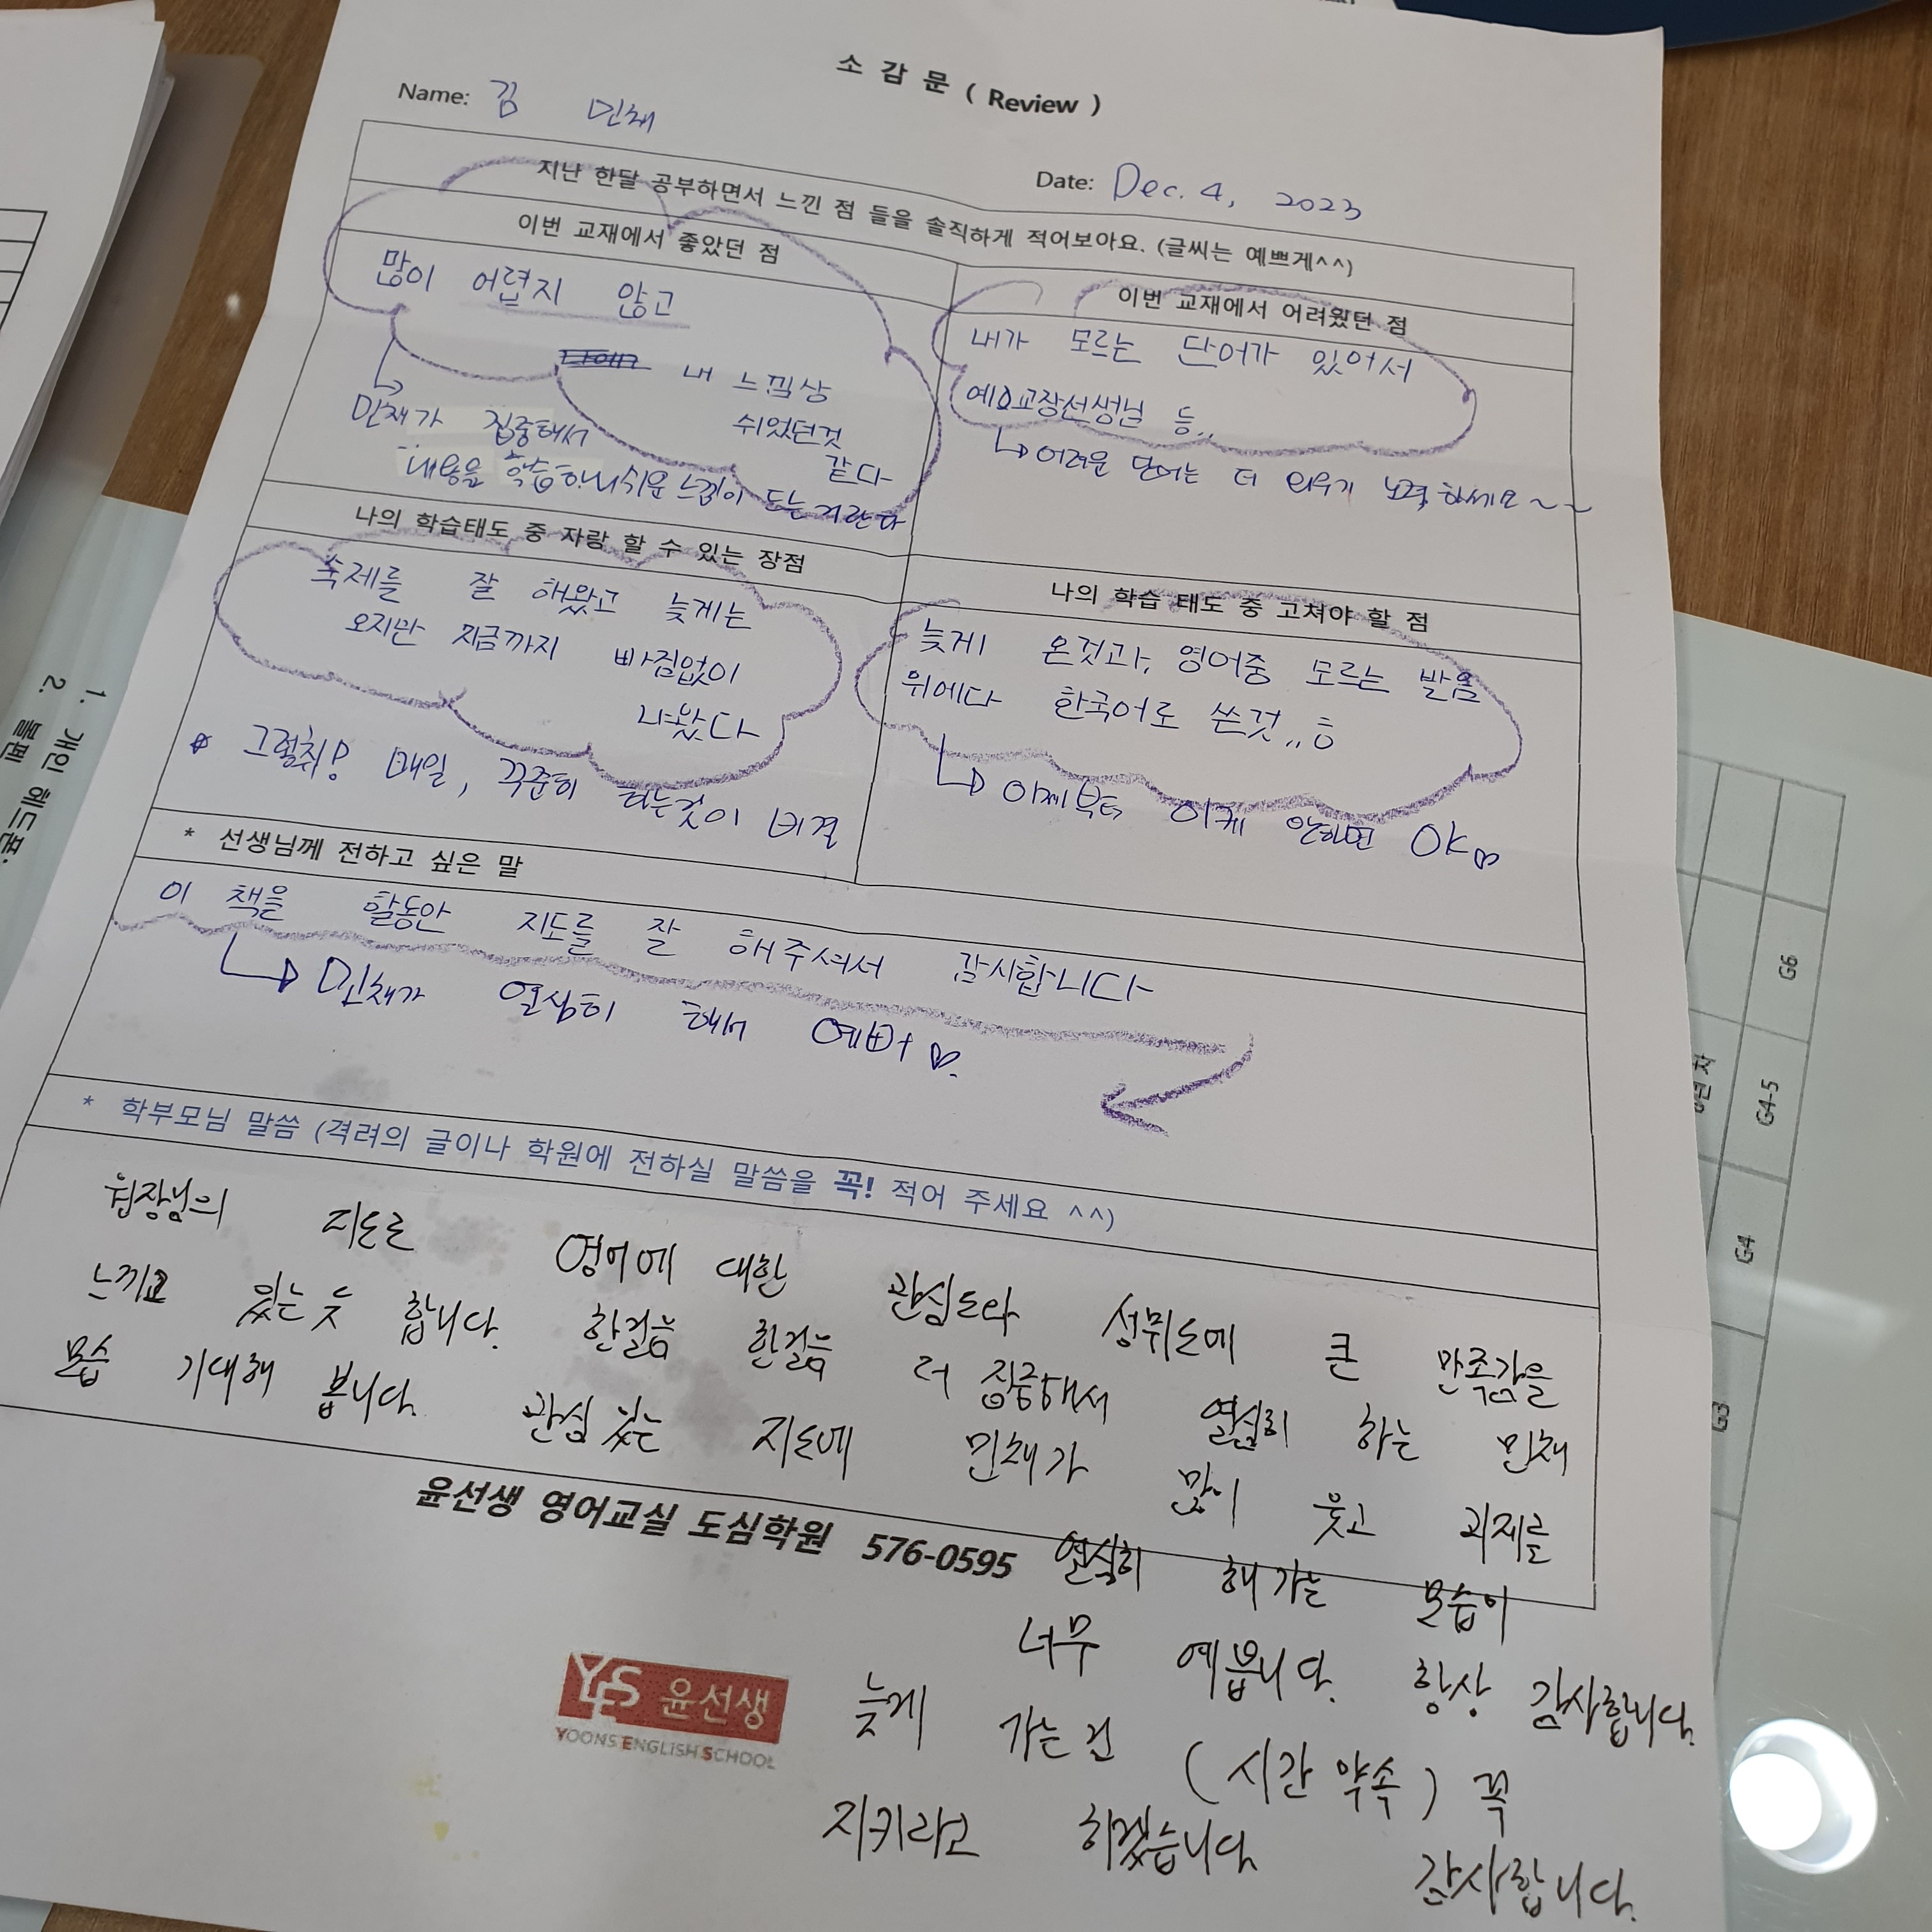 소 감 문 ( Review )
Name: 김 민채
Date: Dec. 4, 2023
지난 한달 공부하면서 느낀 점 들을 솔직하게 적어보아요. (글씨는 예쁘게^^)
이번 교재에서 좋았던 점
많이 어렵지 않고
내 느낌상
쉬었던것
같다
민채가 집중해서
내용을 학습하니 쉬운 느낌이 드는거란다
이번 교재에서 어려웠던 점
내가 모르는 단어가 있어서
예)교장선생님 등..
어려운 단어는 더 외우기 노력하세요~~
나의 학습태도 중 자랑 할 수 있는 장점
숙제를 잘 해왔고 늦게는
오지만 지금까지 빠짐없이
나왔다
* 그렇취! 매일, 꾸준히 하는것이 비결
나의 학습 태도 중 고쳐야 할 점
늦게 온것과, 영어중 모르는 발음
위에다 한국어로 쓴것..
이제부터 이케 안하면 OK
* 선생님께 전하고 싶은 말
이 책을 할동안 지도를 잘 해주셔서 감사합니다
민채가 열심히 해서 예뻐♡.
* 학부모님 말씀 (격려의 글이나 학원에 전하실 말씀을 꼭! 적어 주세요 ^^)
원장님의 지도로 영어에 대한 관심도와 성취도에 큰 만족감을
느끼고 있는 듯 합니다. 한걸음 한걸음 더 집중해서 열심히 하는 민채
모습 기대해 봅니다. 관심 있는 지도에 민채가 많이 웃고 과제를
열심히 해 가는 모습이
너무 예쁩니다. 항상 감사합니다.
늦게 가는 건 (시간 약속) 꼭
지키라고 하겠습니다. 감사합니다.
윤선생 영어교실 도심학원 576-0595
YES 윤선생
YOONS ENGLISH SCHOOL
1. 개인 헤드폰.
2. 볼펜
G6
G4-5
G4
G3